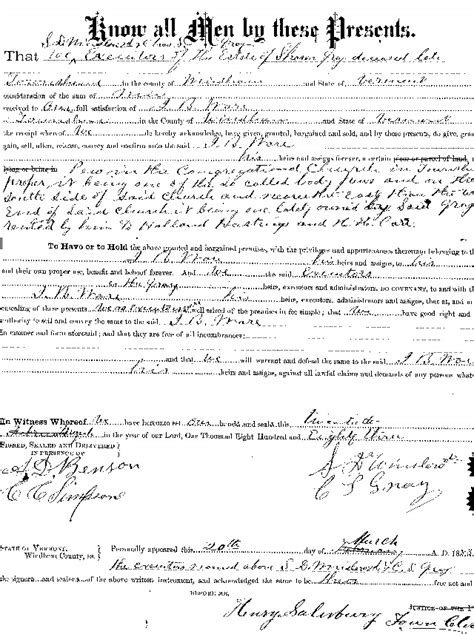 Know all Men by these Presents.
S D Winslow & Chas S Gray
That we Executors of the Estate of Gray deceased late
Townshend in the county of Windham and State of Vermont
consideration of the sum of
received to Our full satisfaction of J B Ware
Townshend in the County of Windham and State of Vermont
the receipt whereof We do hereby acknowledge, have given, granted, bargained and sold, and by these presents, do give, gran
gain, sell, alien, release, convey and confirm unto the said J. B. Ware
his heirs and assigns forever, a certain piece or parcel of land,
lying or being in Pew in the Congregational Church in Townshe
proper, it being one of the so called body pews and on the
South side of said Church and near the East
End of said Church it being one lately owned by said Gray
rented by him Holland Hastings and H. H. Carr
To Have or to Hold the above granted and bargained premises, with the privileges and appurtenances thereunto belonging to the
J B Ware his heirs and assigns, to his
and their own proper use, benefit and behoof forever. And We the said Executors
heirs, executors and administrators, do covenant, and with the
J. B. Ware his heirs, executors, administrators and assigns, that at and until
ensealing of these presents we as executors well seized of the premises in fee simple; that we have good right and
authority to sell and convey the same to the said J. B. Ware
in manner and form aforesaid; and that they are free of all incumbrances;
and that we will warrant and defend the same to the said J B Ware
his heirs and assigns, against all lawful claims and demands of any persons whate
In Witness Whereof, We have hereunto set Our hand and seal, this twentieth
March in the year of our Lord, One Thousand Eight Hundred and Eighty
SIGNED, SEALED AND DELIVERED
IN PRESENCE OF
S. D. Benson
S. D. Winslow
C. C. Simpson
C S Gray
STATE OF VERMONT,
Windham County, ss.
Personally appeared this 20th day of March A. D. 188
the executors named above S. D. Winslow & C. S. Gray
the signers and sealers of the above written instrument, and acknowledged the same to be their
BEFORE ME,
Henry Salisbury Town Cler
JUSTICE OF THE